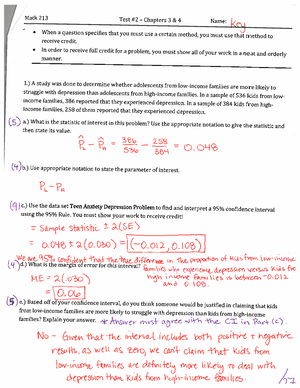 Math 213
Test #2 - Chapters 3 & 4
Name: Key
• When a question specifies that you must use a certain method, you must use that method to
receive credit.
• In order to receive full credit for a problem, you must show all of your work in a neat and orderly
manner.
1.) A study was done to determine whether adolescents from low-income families are more likely to
struggle with depression than adolescents from high-income families. In a sample of 536 kids from low-
income families, 386 reported that they experienced depression. In a sample of 384 kids from high-
income families, 258 of them reported that they experienced depression.
(5) a.) What is the statistic of interest in this problem? Use the appropriate notation to give the statistic and
then state its value.
P̂L - P̂H = 386/536 - 258/384 = 0.048
(4) b.) Use appropriate notation to state the parameter of interest.
PL - PH
(9) c.) Use the data set Teen Anxiety Depression Problem to find and interpret a 95% confidence interval
using the 95% Rule. You must show your work to receive credit!
= Sample statistic ± 2(SE)
= 0.048 ± 2(0.030) = (-0.012, 0.108)
We are 95% confident that the true difference in the proportion of kids from low-income
(4) d.) What is the margin of error for this interval?
families who experience depression versus kids from
high income families is between -0.012
and 0.108.
ME = 2(.030)
= 0.06
(5) e.) Based off of your confidence interval, do you think someone would be justified in claiming that kids
from low-income families are more likely to struggle with depression than kids from high-income
families? Explain your answer. * Answer must agree with the CI in Part (c).
No - Given that the interval includes both positive + negative
results, as well as zero, we can't claim that kids from
low-income families are definitely more likely to deal with
depression than kids from high-income families.